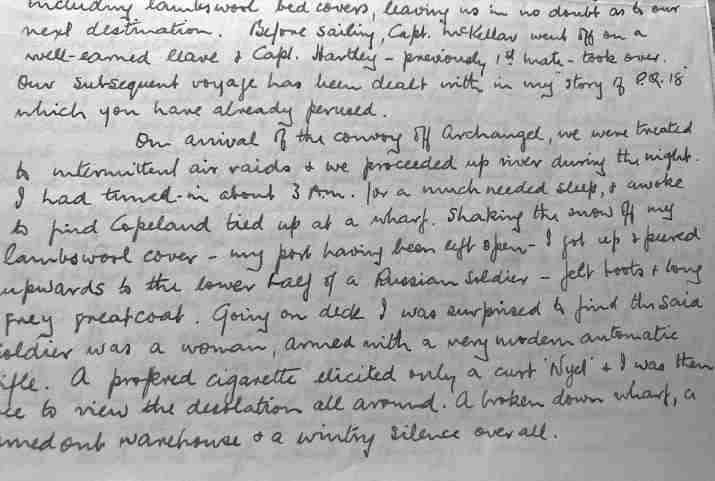 including lambswool bed covers, leaving us in no doubt as to our
next destination. Before sailing, Capt. McKellar went off on a
well-earned leave & Capt. Hartley - previously 1st mate - took over.
Our subsequent voyage has been dealt with in my story of P.Q.18
which you have already perused.
On arrival of the convoy off Archangel, we were treated
to intermittent air raids & we proceeded up river during the night.
I had turned-in about 3 A.m. for a much needed sleep, & awoke
to find Copeland tied up at a wharf. Shaking the snow off my
lambswool cover - my port having been left open - I got up & peered
upwards to the lower half of a Russian Soldier - felt boots & long
grey greatcoat. Going on deck I was surprised to find the said
soldier was a woman, armed with a very modern automatic
ifle. A profered cigarette elicited only a curt 'Nyet' & I was then
ee to view the desolation all around. A broken down wharf, a
rned out warehouse & a wintry silence over all.